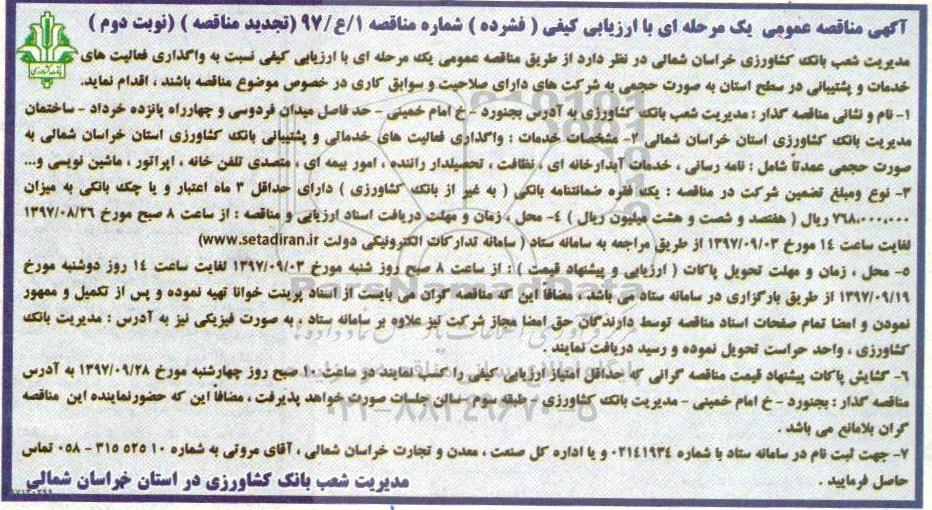 آگهی مناقصه عمومی یک مرحله ای با ارزیابی کیفی ( فشرده ) شماره مناقصه ۹۷/ع/۱ (تجدید مناقصه ) (نوبت دوم )
مدیریت شعب بانک کشاورزی خراسان شمالی در نظر دارد از طریق مناقصه عمومی یک مرحله ای با ارزیابی کیفی نسبت به واگذاری فعالیت های
خدمات و پشتیبانی در سطح استان به صورت حجمی به شرکت های دارای صلاحیت و سوابق کاری در خصوص موضوع مناقصه باشند ، اقدام نماید.
۱- نام و نشانی مناقصه گذار : مدیریت شعب بانک کشاورزی به آدرس بجنورد - خ امام خمینی - حد فاصل میدان فردوسی و چهارراه پانزده خرداد - ساختمان
مدیریت بانک کشاورزی استان خراسان شمالی ۲- مشخصات خدمات : واگذاری فعالیت های خدماتی و پشتیبانی بانک کشاورزی استان خراسان شمالی به
صورت حجمی عمدتاً شامل : نامه رسانی ، خدمات آبدارخانه ای ، نظافت ، تحصیلدار راننده ، امور بیمه ای ، متصدی تلفن خانه ، اپراتور ، ماشین نویسی و...
۳- نوع ومبلغ تضمین شرکت در مناقصه : یک فقره ضمانتنامه بانکی ( به غیر از بانک کشاورزی ) دارای حداقل ۳ ماه اعتبار و یا چک بانکی به میزان
۷۶۸،۰۰۰،۰۰۰ ریال ( هفتصد و شصت و هشت میلیون ریال ) ۴- محل ، زمان و مهلت دریافت اسناد ارزیابی و مناقصه : از ساعت ۸ صبح مورخ ۱۳۹۷/۰۸/۲۶
لغایت ساعت ۱۴ مورخ ۱۳۹۷/۰۹/۰۳ از طریق مراجعه به سامانه ستاد ( سامانه تدارکات الکترونیکی دولت www.setadiran.ir)
۵- محل ، زمان و مهلت تحویل پاکات ( ارزیابی و پیشنهاد قیمت ) : از ساعت ۸ صبح روز شنبه مورخ ۱۳۹۷/۰۹/۰۳ لغایت ساعت ۱۴ روز دوشنبه مورخ
۱۳۹۷/۰۹/۱۹ از طریق بارگزاری در سامانه ستاد می باشد ، مضافاً این که مناقصه گران می بایست از اسناد پرینت خوانا تهیه نموده و پس از تکمیل و ممهور
نمودن و امضا تمام صفحات اسناد مناقصه توسط دارندگان حق امضا مجاز شرکت نیز علاوه بر سامانه ستاد ، به صورت فیزیکی نیز به آدرس : مدیریت بانک
کشاورزی ، واحد حراست تحویل نموده و رسید دریافت نمایند .
۶- گشایش پاکات پیشنهاد قیمت مناقصه گرانی که حداقل امتیاز ارزیابی کیفی را کسب نمایند در ساعت ۱۰ صبح روز چهارشنبه مورخ ۱۳۹۷/۰۹/۲۸ به آدرس
مناقصه گذار : بجنورد - خ امام خمینی - مدیریت بانک کشاورزی - طبقه سوم - سالن جلسات صورت خواهد پذیرفت ، مضافاً این که حضورنماینده این مناقصه
گران بلامانع می باشد .
۷- جهت ثبت نام در سامانه ستاد با شماره ۰۲۱۴۱۹۳۴ و یا اداره کل صنعت ، معدن و تجارت خراسان شمالی ، آقای مروتی به شماره ۱۰ ۵۲۵ ۳۱۵ - ۰۵۸ تماس
حاصل فرمایید .
مدیریت شعب بانک کشاورزی در استان خراسان شمالی